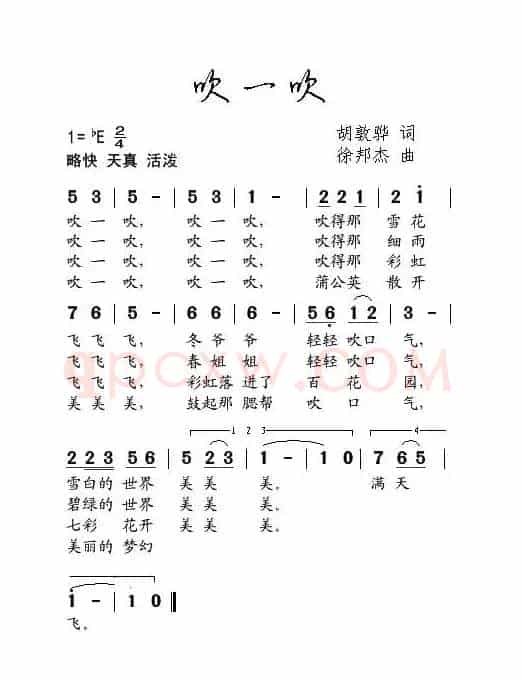 吹一吹
1=♭E 2/4
胡敦骅 词
略快 天真 活泼
徐邦杰 曲
5 3 | 5 - | 5 3 | 1 - | 2 2 1 | 2 i |
吹一 吹, 吹一 吹, 吹得那 雪花
吹一 吹, 吹一 吹, 吹得那 细雨
吹一 吹, 吹一 吹, 吹得那 彩虹
吹一 吹, 吹一 吹, 蒲公英 散开
7 6 | 5 - | 6 6 | 6 - | 5 6 1 2 | 3 - |
飞飞 飞, 冬爷 爷 轻轻 吹口 气,
飞飞 飞, 春姐 姐 轻轻 吹口 气,
飞飞 飞, 彩虹落 进了 百 花 园,
美美 美, 鼓起那 腮帮 吹 口 气,
1 2 3
4
2 2 3 5 6 | 5 2 3 | 1 - | 1 0 | 7 6 5 |
雪白的 世界 美 美 美。 满 天
碧绿的 世界 美 美 美。
七彩 花开 美 美 美。
美丽的 梦幻
i - | i 0 ‖
飞。
qpcxw.COM